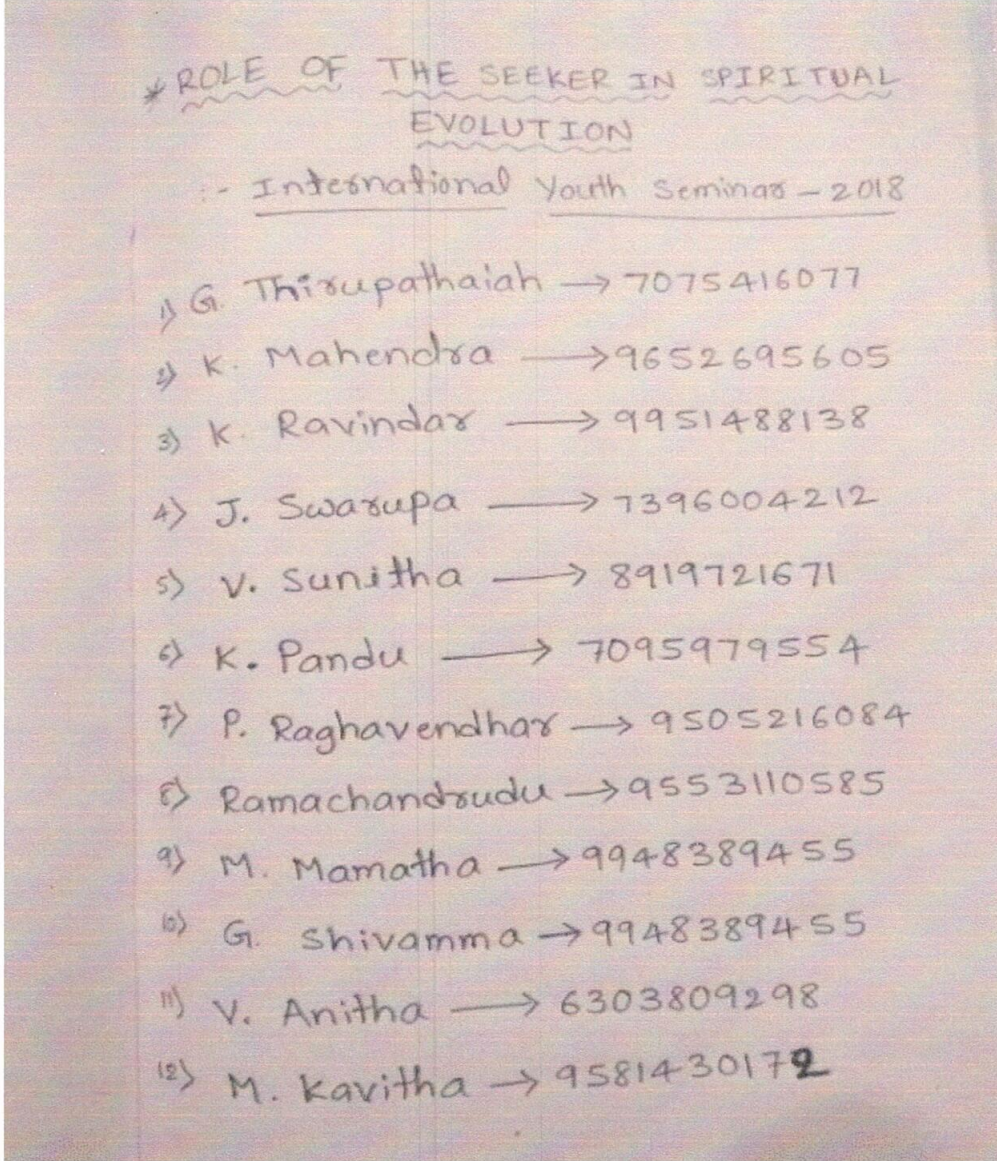 * ROLE OF THE SEEKER IN SPIRITUAL
EVOLUTION
:- International Youth Seminar - 2018
1) G. Thirupathaiah → 7075416077
2) K. Mahendra → 9652695605
3) K. Ravindar → 9951488138
4) J. Swarupa → 7396004212
5) V. Sunitha → 8919721671
6) K. Pandu → 7095979554
7) P. Raghavendhar → 9505216084
8) Ramachandrudu → 9553110585
9) M. Mamatha → 9948389455
10) G. Shivamma → 9948389455
11) V. Anitha → 6303809298
12) M. Kavitha → 9581430172